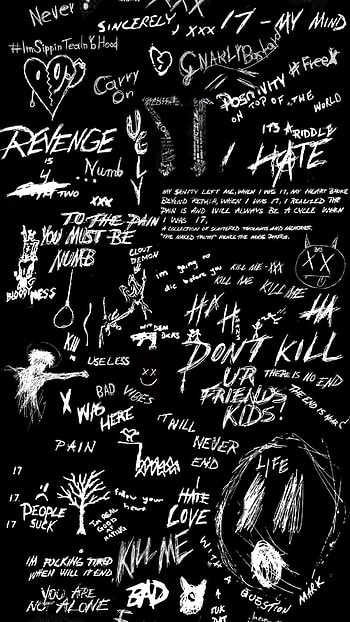 Never
SINCERELY, xxx
17 - MY MIND
#ImSippinTeaInYoHood
GNARLY Bastard
Carry
On
POSITIVITY
#Free X
ON TOP OF THE
WORLD
REVENGE
IT'S A RIDDLE
I HATE
IS
4
TWO
Numb
XXX
UGLY
MY SANITY LEFT ME, WHEN I WAS 17, MY HEART BROKE
BEYOND REPAIR, WHEN I WAS 17, I REALIZED THE
PAIN IS AND WILL ALWAYS BE A CYCLE WHEN
I WAS 17.
A COLLECTION OF SCATTERED THOUGHTS AND MEMORIES.
TO THE PAIN
YOU MUST BE
NUMB
XX
CLOUT
DEMON
im going to
die before you
KILL ME -XX
KILL ME
KILL ME
BLOODY MESS
HA
HA
HA
DON'T KILL
UR
FRIENDS
KIDS!
THERE IS NO END
KILL
USELESS
BAD VIBES
X WAS
HERE
IT WILL
NEVER
END
PAIN
LIFE
17
17
17
PEOPLE
SUCK
follow your
heart
I HATE
LOVE
IM FUCKING TIRED
WHEN WILL IT END
KILL ME
YOU ARE
NOT ALONE
BAD
WITH A
QUESTION
MARK